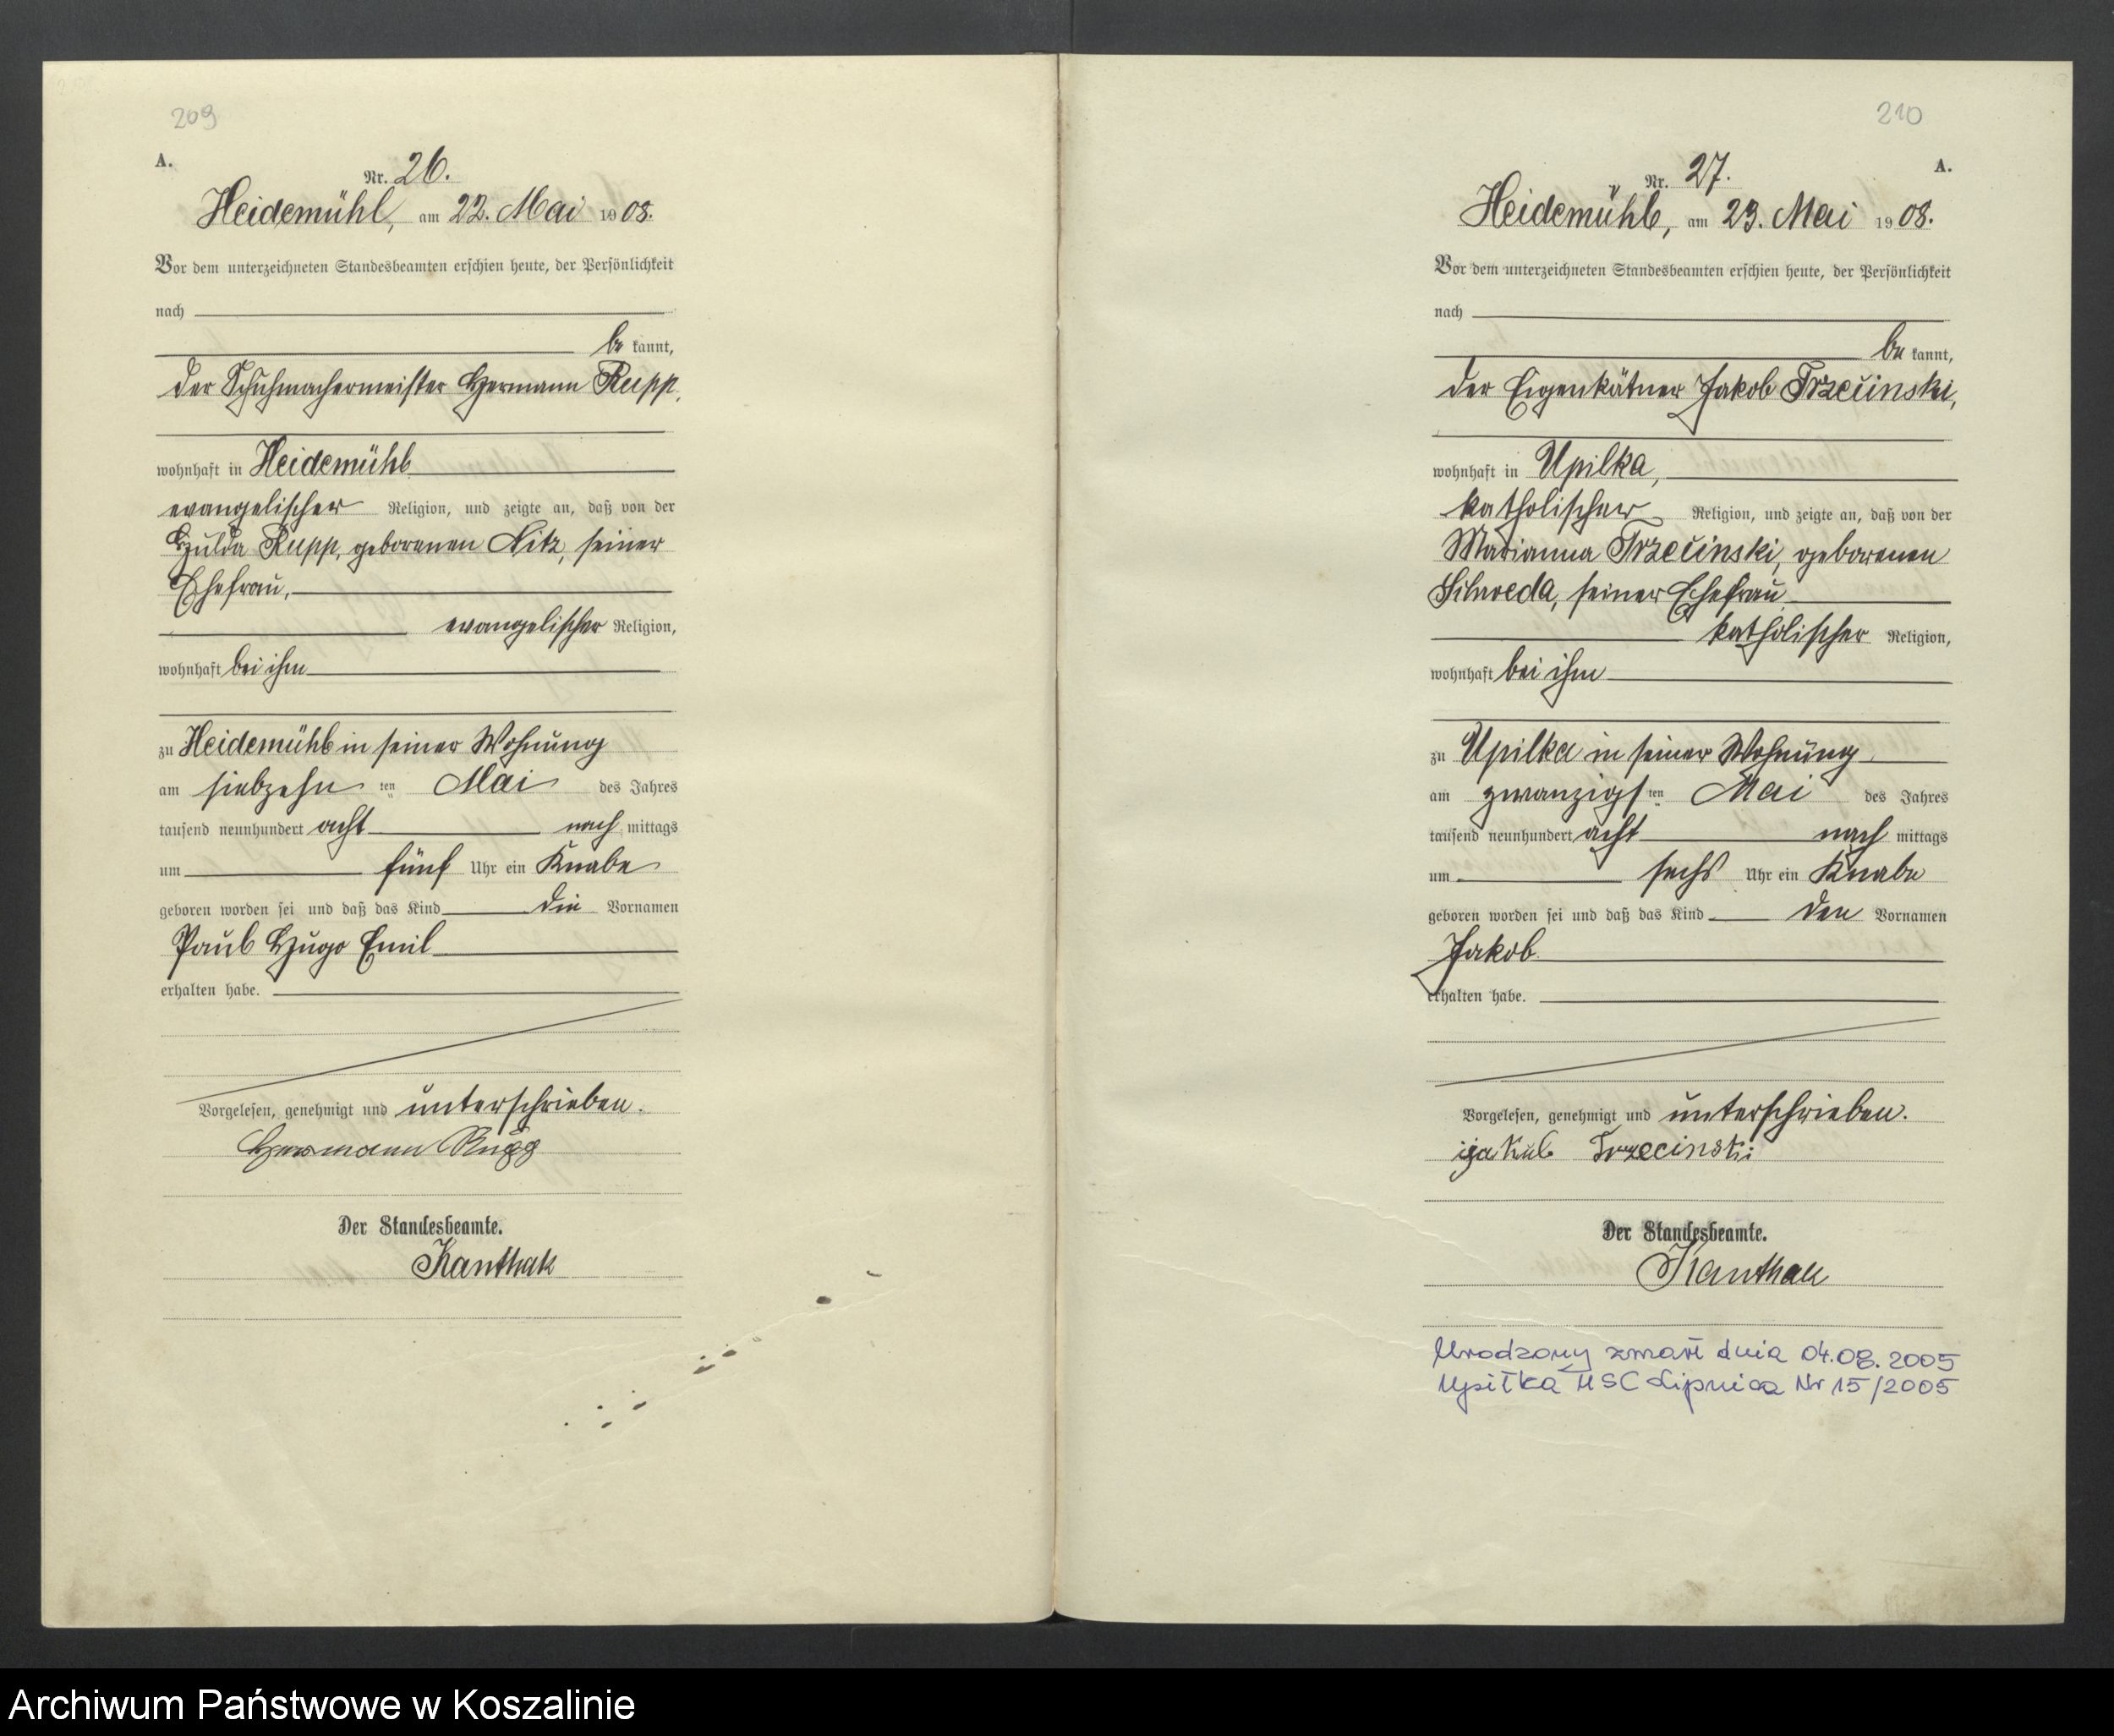 209
A.
Nr. 26.
Heidemühl, am 22. Mai 1908.
Vor dem unterzeichneten Standesbeamten erschien heute, der Persönlichkeit
nach
be kannt,
der Schuhmachermeister Hermann Rupp,
wohnhaft in Heidemühl
evangelischer Religion, und zeigte an, daß von der
Hulda Rupp, geborenen Nitz, seiner
Ehefrau,
evangelischer Religion,
wohnhaft bei ihm
zu Heidemühl in seiner Wohnung
am siebzehn ten Mai des Jahres
tausend neunhundert acht nach mittags
um fünf Uhr ein Knabe
geboren worden sei und daß das Kind die Vornamen
Paul Hugo Emil
erhalten habe.
Vorgelesen, genehmigt und unterschrieben.
Hermann Rupp
Der Standesbeamte.
Kanthak
210
A.
Nr. 27.
Heidemühl, am 23. Mai 1908.
Vor dem unterzeichneten Standesbeamten erschien heute, der Persönlichkeit
nach
be kannt,
der Eigenkätner Jakob Trzecinski,
wohnhaft in Upilka,
katholischer Religion, und zeigte an, daß von der
Marianna Trzecinski, geborenen
seiner Ehefrau
katholischer Religion,
wohnhaft bei ihm
zu Upilka in seiner Wohnung
am zwanzigs ten Mai des Jahres
tausend neunhundert acht nach mittags
um sechs Uhr ein Knabe
geboren worden sei und daß das Kind den Vornamen
Jakob
erhalten habe.
Vorgelesen, genehmigt und unterschrieben.
Trzecinski
Der Standesbeamte.
Kanthak
Urodzony zmarł dnia 04.08.2005
Upiłka USC Lipnica Nr 15/2005
Archiwum Państwowe w Koszalinie